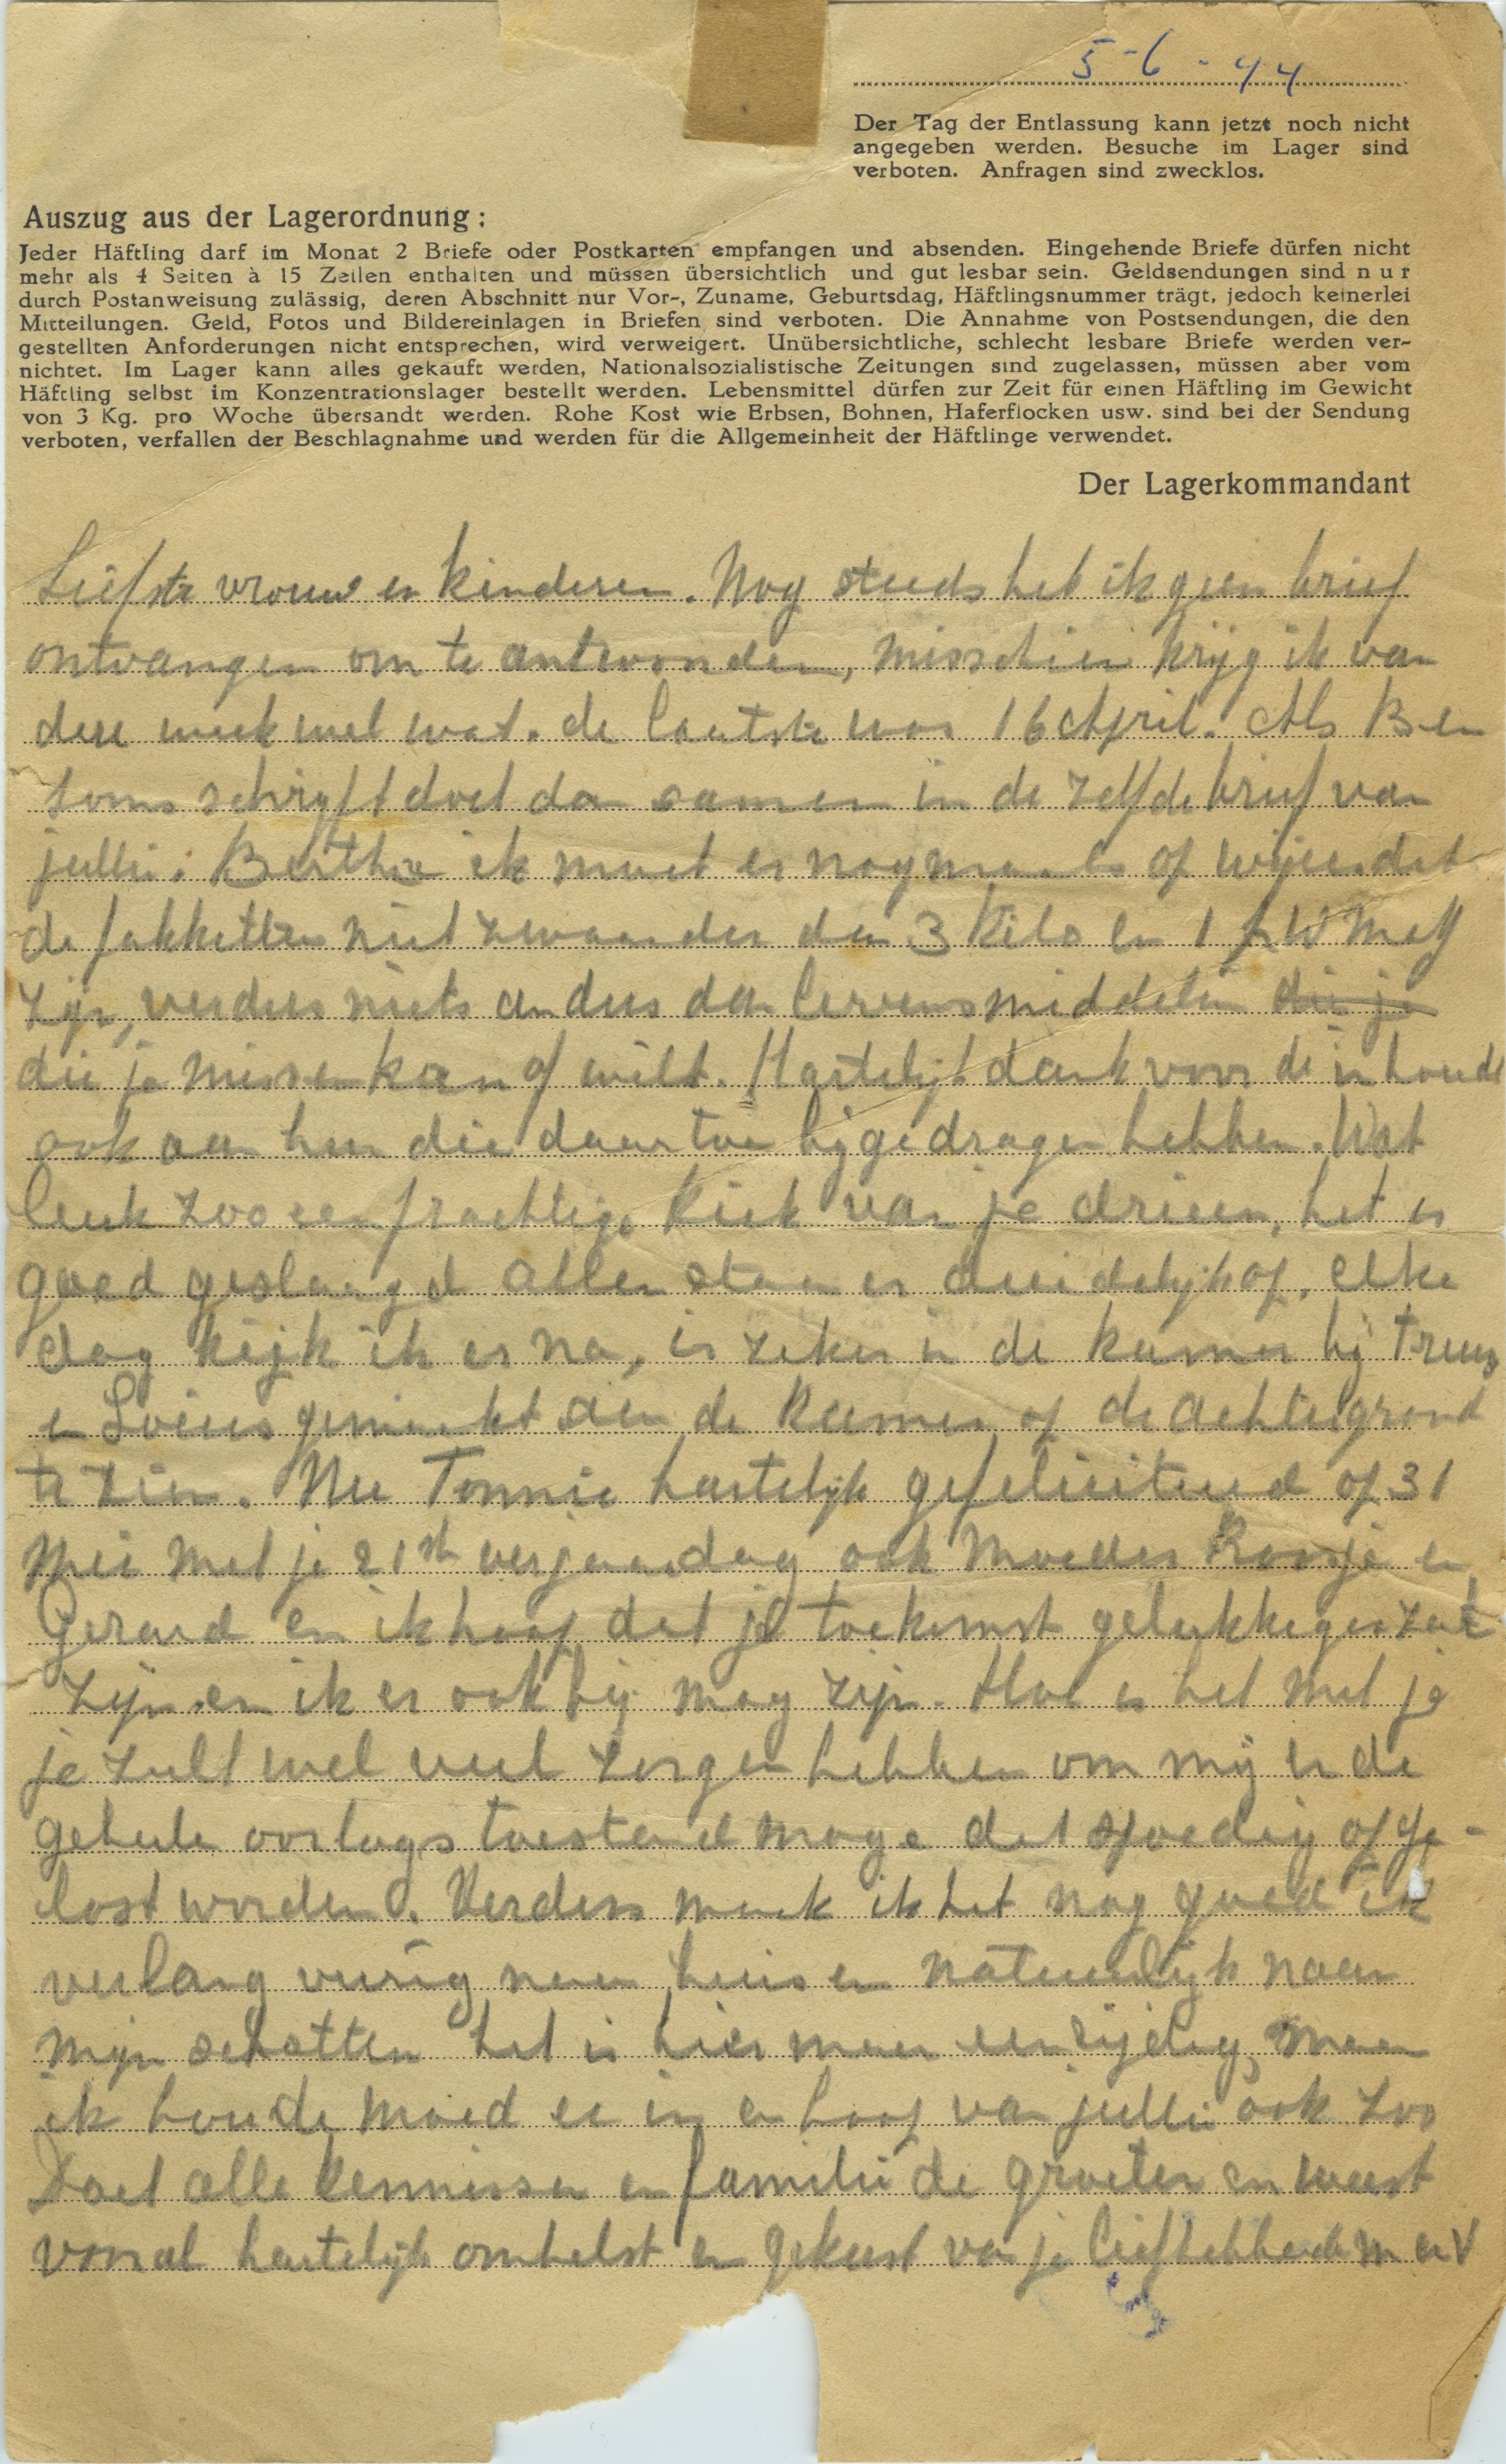 5-6-44
Der Tag der Entlassung kann jetzt noch nicht
angegeben werden. Besuche im Lager sind
verboten. Anfragen sind zwecklos.
Auszug aus der Lagerordnung:
Jeder Häftling darf im Monat 2 Briefe oder Postkarten empfangen und absenden. Eingehende Briefe dürfen nicht
mehr als 4 Seiten à 15 Zeilen enthalten und müssen übersichtlich und gut lesbar sein. Geldsendungen sind nur
durch Postanweisung zulässig, deren Abschnitt nur Vor-, Zuname, Geburtsdag, Häftlingsnummer trägt, jedoch keinerlei
Mitteilungen. Geld, Fotos und Bildereinlagen in Briefen sind verboten. Die Annahme von Postsendungen, die den
gestellten Anforderungen nicht entsprechen, wird verweigert. Unübersichtliche, schlecht lesbare Briefe werden ver-
nichtet. Im Lager kann alles gekauft werden, Nationalsozialistische Zeitungen sind zugelassen, müssen aber vom
Häftling selbst im Konzentrationslager bestellt werden. Lebensmittel dürfen zur Zeit für einen Häftling im Gewicht
von 3 Kg. pro Woche übersandt werden. Rohe Kost wie Erbsen, Bohnen, Haferflocken usw. sind bei der Sendung
verboten, verfallen der Beschlagnahme und werden für die Allgemeinheit der Häftlinge verwendet.
Der Lagerkommandant
Liefste vrouw en kinderen. Nog steeds heb ik geen brief
ontvangen om te antwoorden, misschien krijg ik van
deze week wel wat. de laatste was 16 April. Als Ben
soms schrijft doet dan samen in de zelfde brief van
jullie. Bertha ik moet er nogmaals op wijzen dat
de pakketten niet zwaarder dan 3 Kilo en 1 p W mag
zijn, verders niets anders dan levensmiddelen die je
die je missen kan of wilt. Hartelijk dank voor de inhoud
ook aan hun die daar toe bijgedragen hebben. Wat
leuk zoo een prachtige Kiek van je drieen, het is
goed geslaagd allen staan er duidelijk op, elke
dag kijk ik er na, is zeker in de kamer bij Truus
en gemaakt aan de kamer op de achtergrond
te zien. Nu Tonnie hartelijk gefeliciteerd op 31
Mei met je 21ste verjaardag ook Moeder Roosje en
Gerard en ik hoop dat je toekomst gelukkiger zal
zijn en ik er ook bij mag zijn. Hoe is het met je
je zult wel veel zorgen hebben om mij en de
geheele oorlogs toestand moge dat spoedig opge-
lost worden. Verders maak ik het nog goed ik
verlang vurig naar huis en natuurlijk naar
mijn schatten het is hier maar eenzijdig, maar
ik houde moed er in en hoop van jullie ook zoo
Doet alle kennissen en familie de groeten en weest
vooral hartelijk omhelst en gekust van je liefhebbende m en V